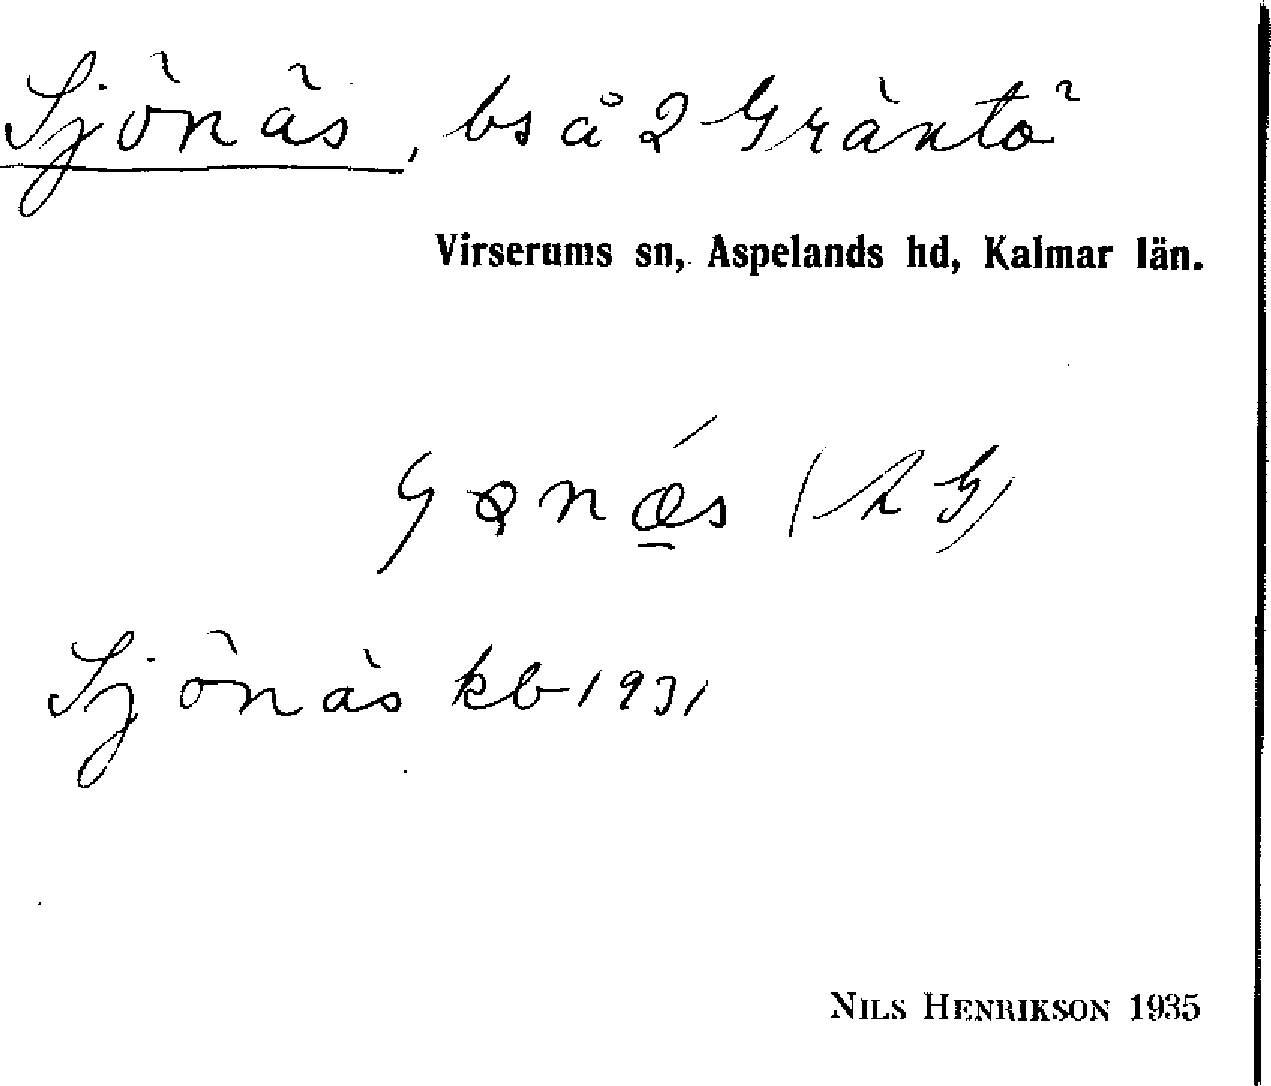 Sjönäs, bs å 2 Gräntö
Virserums sn, Aspelands hd, Kalmar län.
Sjönäs kb 1931
NILS HENRIKSON 1935